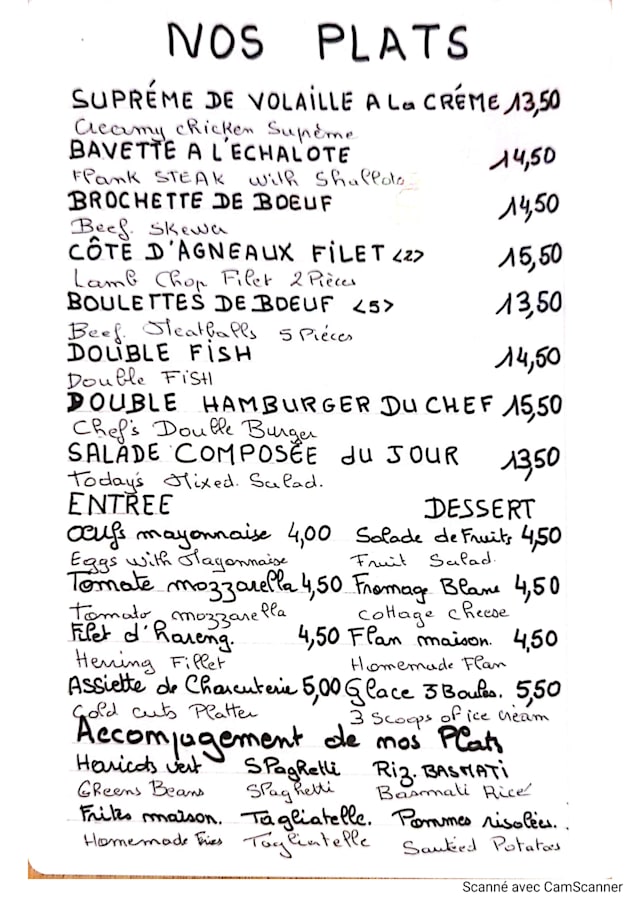 NOS PLATS
SUPRÉME DE VOLAILLE A La CRÉME 13,50
Creamy chicken Suprême
BAVETTE A L'ECHALOTE 14,50
Flank STEAK with Shallots
BROCHETTE DE BOEUF 14,50
Beef. Skewer
CÔTE D'AGNEAUX FILET <2> 15,50
Lamb Chop Filet 2 Pièces
BOULETTES DE BOEUF <5> 13,50
Beef. Meatballs 5 Piéces
DOUBLE FISH 14,50
Double FISH
DOUBLE HAMBURGER DU CHEF 15,50
Chef's Double Burger
SALADE COMPOSÉE du JOUR 13,50
Today's Mixed. Salad.
ENTREE DESSERT
Œufs mayonnaise 4,00 Salade de Fruits 4,50
Eggs with Mayonnaise Fruit Salad.
Tomate mozzarella 4,50 Fromage Blanc 4,50
Tomato mozzarella cottage cheese
Filet d'hareng. 4,50 Flan maison. 4,50
Herring Fillet Homemade Flan
Assiette de Charcuterie 5,00 Glace 3 Boules. 5,50
Cold cuts Platter 3 Scoops of ice cream
Accompagement de nos Plats
Haricots vert SPaghetti Riz. BASMATI
GReens Beans SPaghetti Basmati Rice
Frites maison. Tagliatelle. Pommes risolées.
Homemade Fries Tagliatelle Sautéed Potatoes
Scanné avec CamScanner